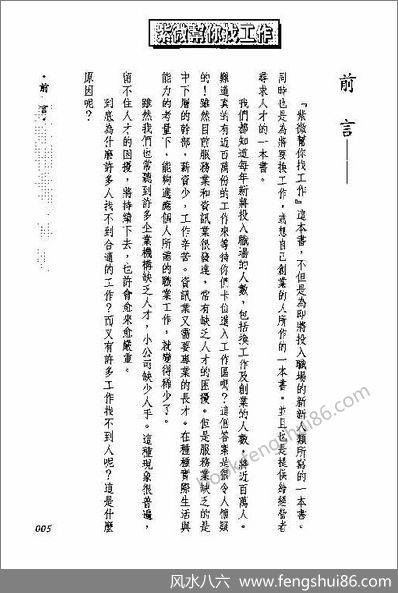 紫微幫你找工作
前言
『紫微幫你找工作』這本書,不但是為即將投入職場的新新人類所寫的一本書。
同時也是為將要換工作,或想自己創業的人所作的一本書。並且也是提供給經營者
尋求人才的一本書。
我們都知道每年新將投入職場的人數,包括換工作及創業的人數,將近百萬人。
難道真的有近百萬份的工作來等待你們卡位進入工作區嗎?這個答案是很令人懷疑
的!雖然目前服務業和資訊業很發達,常有缺乏人才的困擾。但是服務業缺乏的是
中下層的幹部,薪資少,工作辛苦。資訊業又需要專業的長才。在種種實際生活與
能力的考量下,能夠適應個人所需的職業工作,就變得稀少了。
雖然我們也常聽到許多企業機構缺乏人才,小公司缺少人手。這種現象很普遍,
留不住人才的困擾,將持續下去,也許會愈來愈嚴重。
到底為什麼許多人找不到合適的工作?而又有許多工作找不到人呢?這是什麼
原因呢?
前言
005
book.fengshui86.com
风水八六 - www.fengshui86.com